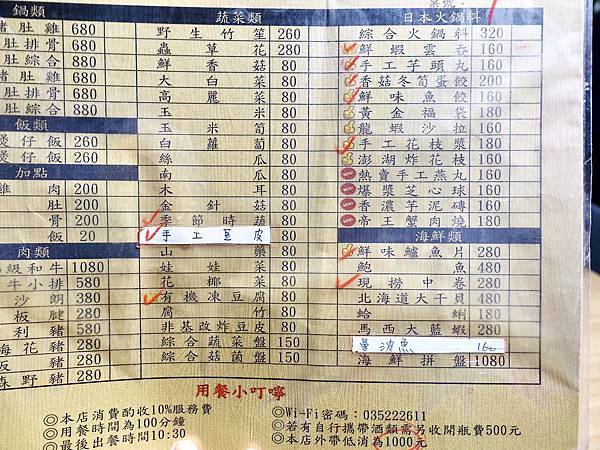 鍋類
豬肚雞 680
肚排骨 680
肚綜合 680
肚雞 880
肚排骨 880
肚綜合 880
飯類
煲仔飯 260
煲仔飯 260
加點
雞肉 200
肚 200
骨 200
飯 20
肉類
級和牛 1080
牛小排 580
沙朗 380
板腱 280
利豬 280
梅花豬 280
豬 280
森野豬 280
蔬菜類
野生竹笙 260
蟲草花 280
鮮香菇 80
大白菜 80
高麗菜 80
玉米 80
玉米筍 80
白蘿蔔 80
絲瓜 80
南瓜 80
木耳 80
金針菇 80
季節時蔬 80
手工豆皮 80
山藥 80
娃娃菜 80
花椰菜 80
有機凍豆腐 80
腐竹 80
非基改炸豆皮 80
綜合蔬菜盤 150
綜合菇菌盤 150
日本火鍋料
綜合火鍋料 320
鮮蝦雲吞 160
手工芋頭丸 160
香菇冬筍蛋餃 200
鮮味魚餃 160
黃金福袋 180
龍蝦沙拉 160
手工花枝漿 180
澎湖炸花枝 160
熱賣手工燕丸 160
爆漿芝心球 160
香濃芋泥磚 160
帝王蟹肉燒 180
海鮮類
鮮味鱸魚片 280
鮑魚 480
現撈中卷 280
北海道大干貝 480
蛤蜊 180
馬西大藍蝦 280
曼波魚 160
海鮮拼盤 1080
用餐小叮嚀
◎本店消費酌收10%服務費
◎用餐時間為100分鐘
◎最後出餐時間10:30
◎Wi-Fi密碼：035222611
◎若有自行攜帶酒類需另收開瓶費500元
◎本店外帶低消為1000元